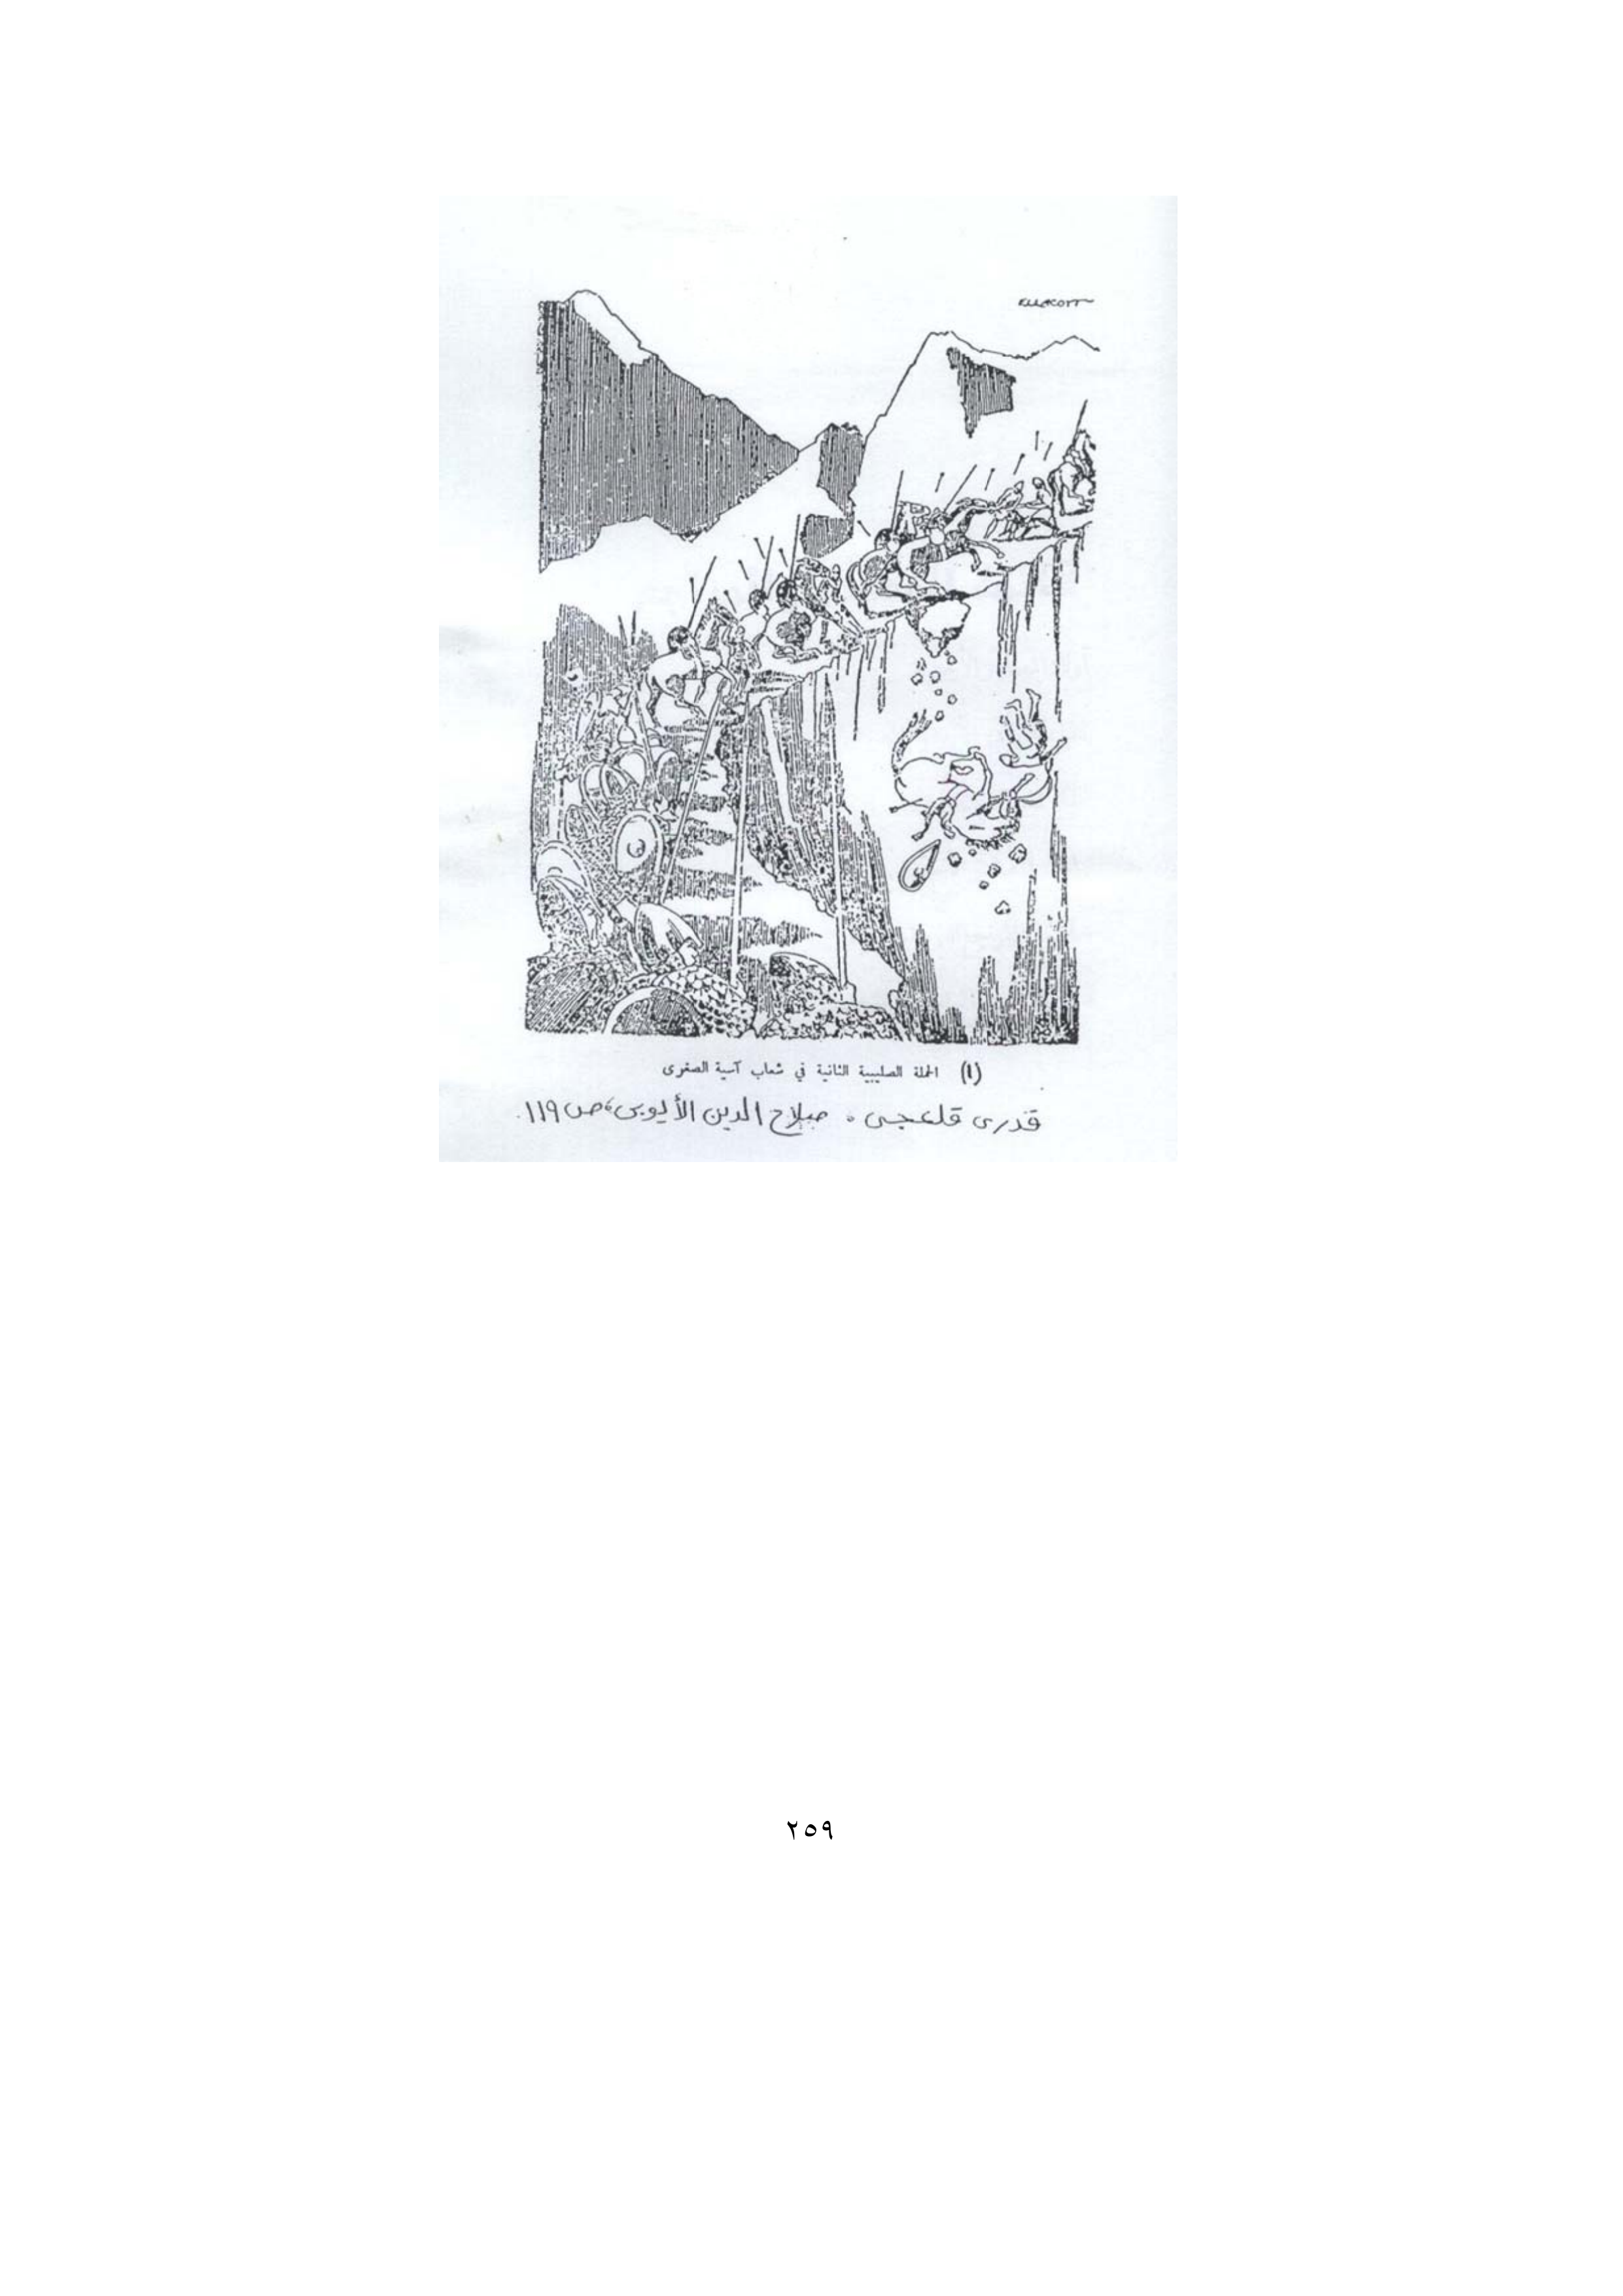 ELLACOTT
(١) الحملة الصليبية الثانية في شعاب آسية الصغرى
قدرى قلعجى . صلاح الدين الأيوبى، ص ١١٩.
٢٥٩